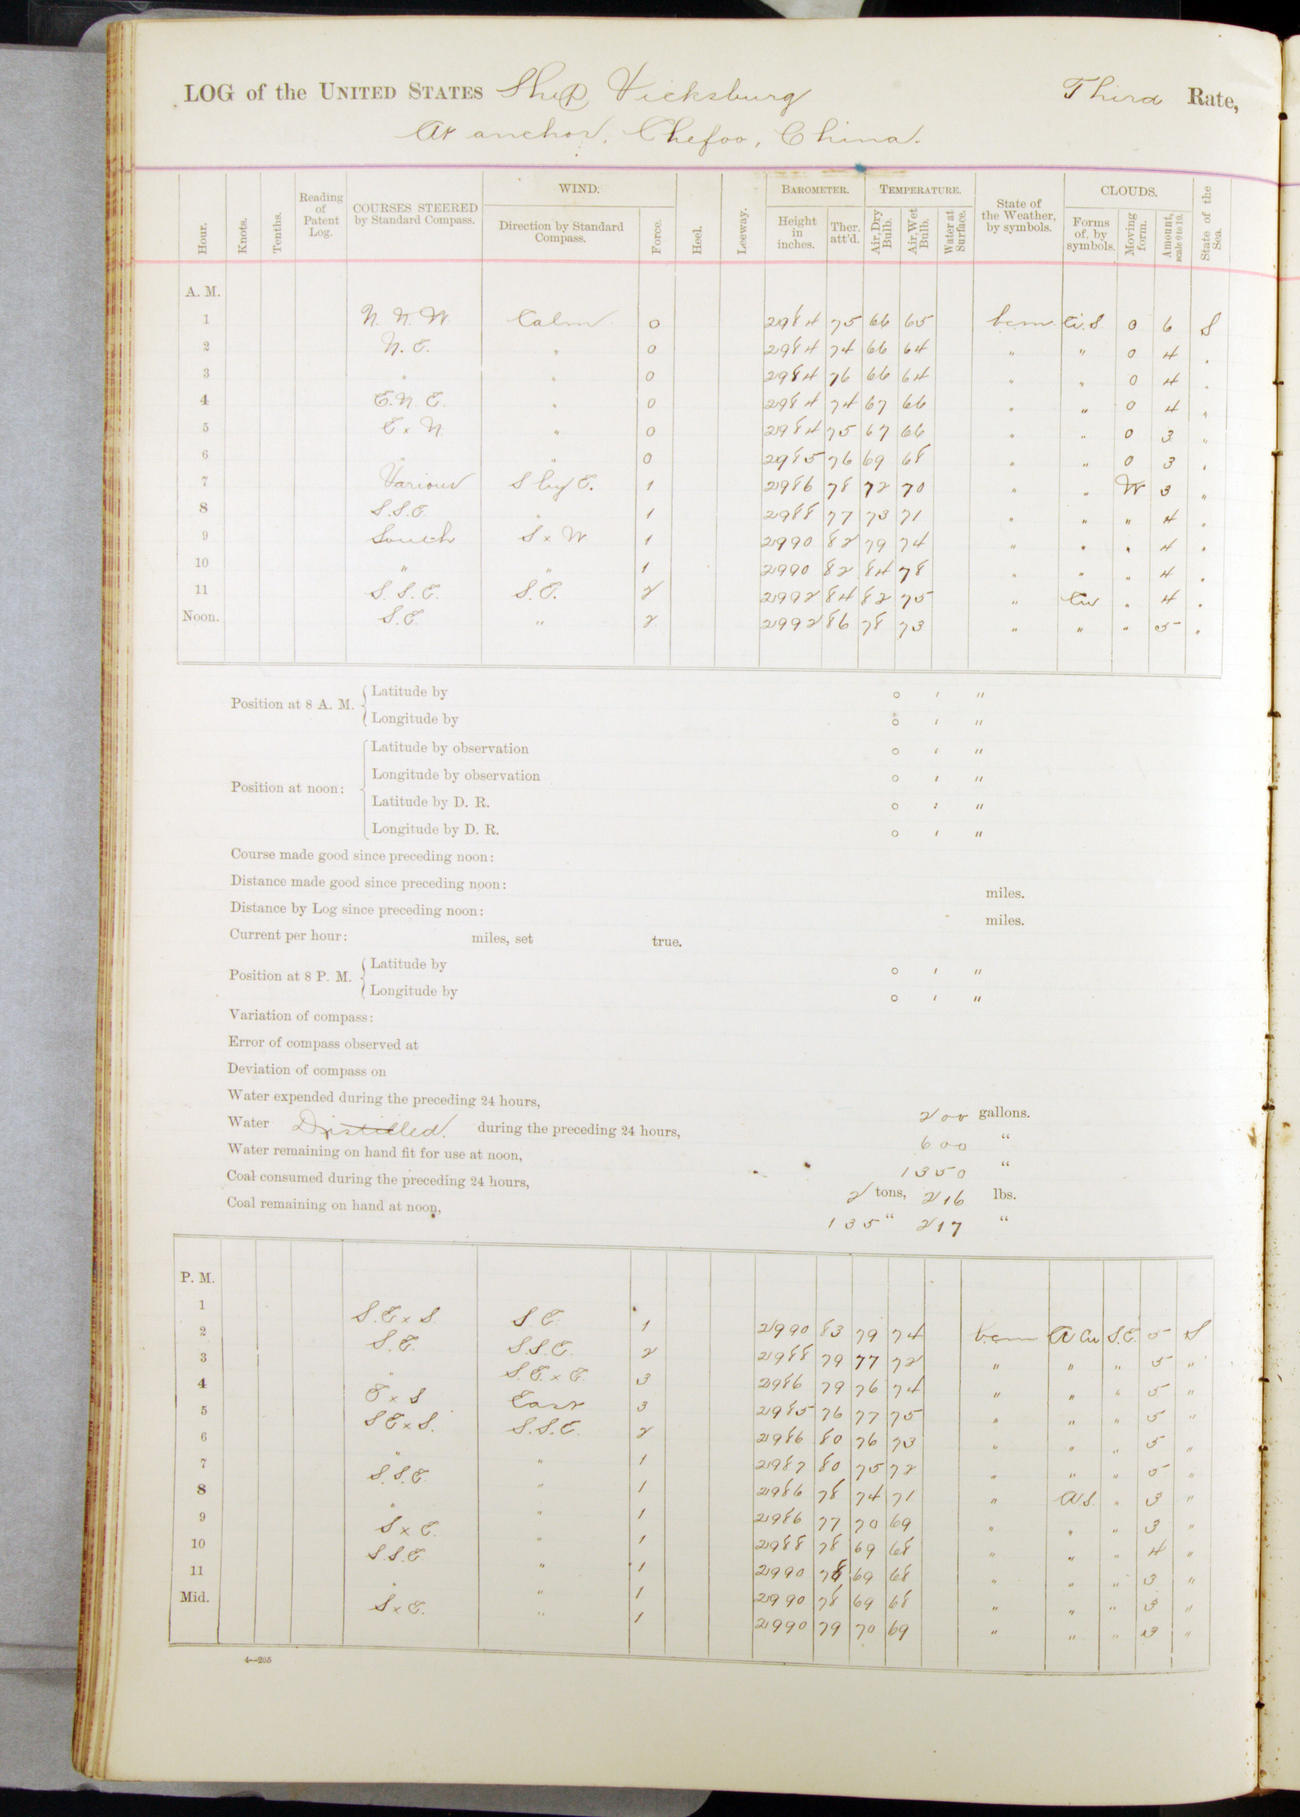 LOG of the UNITED STATES Ship Vicksburg Third Rate,
At anchor, Chefoo, China.
Hour. Knots. Tenths. Reading of Patent Log. COURSES STEERED by Standard Compass. WIND. Direction by Standard Compass. Force. Heel. Leeway. BAROMETER. Height in inches. Ther. att'd. TEMPERATURE. Air, Dry Bulb. Air, Wet Bulb. Water at Surface. State of the Weather, by symbols. CLOUDS. Forms of, by symbols. Moving form. Amount, scale 0 to 10. State of the Sea.
A. M.
1 N. N. W. Calm 0 2984 75 66 65 bcm Ci. S 0 6 S
2 N. E. " 0 2984 74 66 64 " " 0 4 "
3 " " 0 2984 76 66 64 " " 0 4 "
4 E. N. E. " 0 2984 74 67 66 " " 0 4 "
5 E x N " 0 2984 75 67 66 " " 0 3 "
6 " " 0 2985 76 69 68 " " 0 3 "
7 Various S by E. 1 2986 78 72 70 " " W 3 "
8 S.S.E. " 1 2988 77 73 71 " " " 4 "
9 South S x W 1 2990 82 79 74 " " " 4 "
10 " " 1 2990 82 84 78 " " " 4 "
11 S. S. E. S. E. 2 2992 84 82 75 " Cu " 4 "
Noon. S. E. " 2 2992 86 78 73 " " " 5 "
Position at 8 A. M. Latitude by ° ′ ″
Longitude by ° ′ ″
Position at noon: Latitude by observation ° ′ ″
Longitude by observation ° ′ ″
Latitude by D. R. ° ′ ″
Longitude by D. R. ° ′ ″
Course made good since preceding noon:
Distance made good since preceding noon: miles.
Distance by Log since preceding noon: miles.
Current per hour: miles, set true.
Position at 8 P. M. Latitude by ° ′ ″
Longitude by ° ′ ″
Variation of compass:
Error of compass observed at
Deviation of compass on
Water expended during the preceding 24 hours, 200 gallons.
Water Distilled during the preceding 24 hours, 600 "
Water remaining on hand fit for use at noon, 1350 "
Coal consumed during the preceding 24 hours, 2 tons, 216 lbs.
Coal remaining on hand at noon, 135 " 217 "
P. M.
1 S. E x S. S E. 1 2990 83 79 74 bcm A Cu S.E. 5 S
2 S. E. S.S.E. 2 2988 79 77 72 " " " 5 "
3 " S. E. x E. 3 2986 79 76 74 " " " 5 "
4 E x S East 3 2985 76 77 75 " " " 5 "
5 S E x S. S.S.E. 2 2986 80 76 73 " " " 5 "
6 " " 1 2987 80 75 72 " " " 5 "
7 S.S.E. " 1 2986 78 74 71 " A S. " 3 "
8 " " 1 2986 77 70 69 " " " 3 "
9 S x E. " 1 2988 78 69 68 " " " 4 "
10 S.S.E. " 1 2990 78 69 68 " " " 3 "
11 " " 1 2990 78 69 68 " " " 3 "
Mid. S x E. " 1 2990 79 70 69 " " " 3 "
4—205